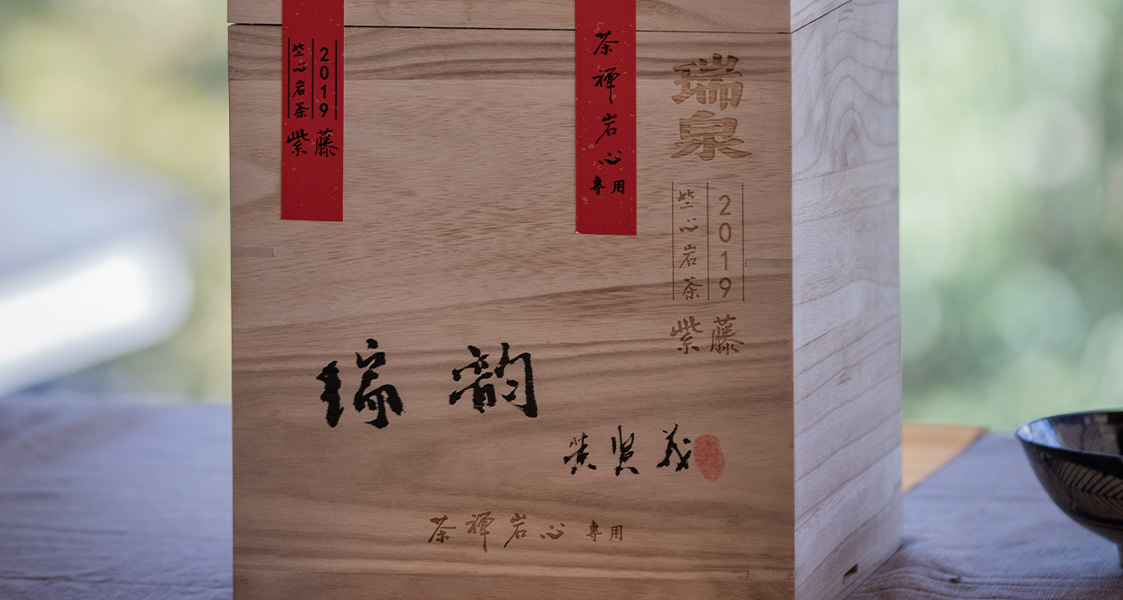 2019
竺心岩茶
紫藤
茶禪岩心
專用
瑞泉
2019
竺心岩茶
紫藤
瑞韵
黄贤义
茶禪岩心 專用